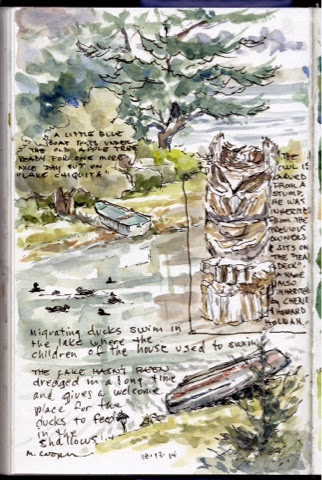 A LITTLE BLUE
BOAT RESTS UNDER
THE OLD APPLE TREE
READY FOR ONE MORE
NICE DAY OUT ON
"LAKE CHIQUITA"
THE
OWL IS
CARVED
FROM A
STUMP.
HE WAS
INHERITED
FROM THE
PREVIOUS
OWNERS
& SITS ON
THE "TEA
DECK".
A NAME
ALSO
INHERITED
by CHENE
HOWARD
Migrating ducks swim in
the lake where the
children of the house used to swim.
THE LAKE HASN'T BEEN
dredged in a long time
and gives a welcome
place for the
ducks to feed
in the
shallows!
M. Cooper
10·13·14